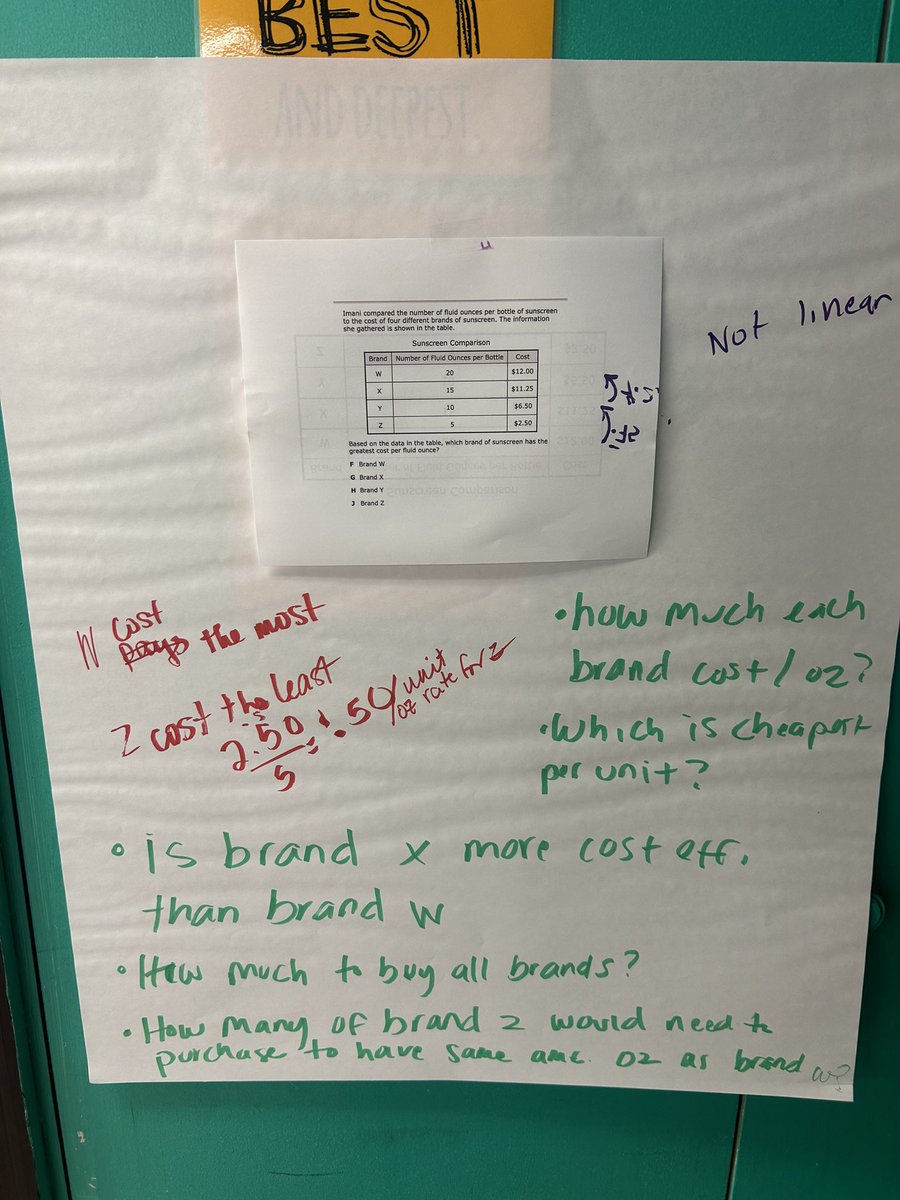 BEST
AND DEEPEST
Imani compared the number of fluid ounces per bottle of sunscreen
to the cost of four different brands of sunscreen. The information
she gathered is shown in the table.
Sunscreen Comparison
Brand Number of Fluid Ounces per Bottle Cost
W 20 $12.00
X 15 $11.25
Y 10 $6.50
Z 5 $2.50
Based on the data in the table, which brand of sunscreen has the
greatest cost per fluid ounce?
F Brand W
G Brand X
H Brand Y
J Brand Z
Not linear
W cost the most
Z cost the least
2.50
5
= .50/unit
oz rate for z
• how much each
brand cost / oz?
• Which is cheapest
per unit?
• is brand x more cost eff.
than brand w
• How much to buy all brands?
• How many of brand z would need to
purchase to have same amt. oz as brand w?